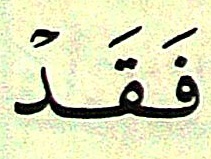 فَقَدْ